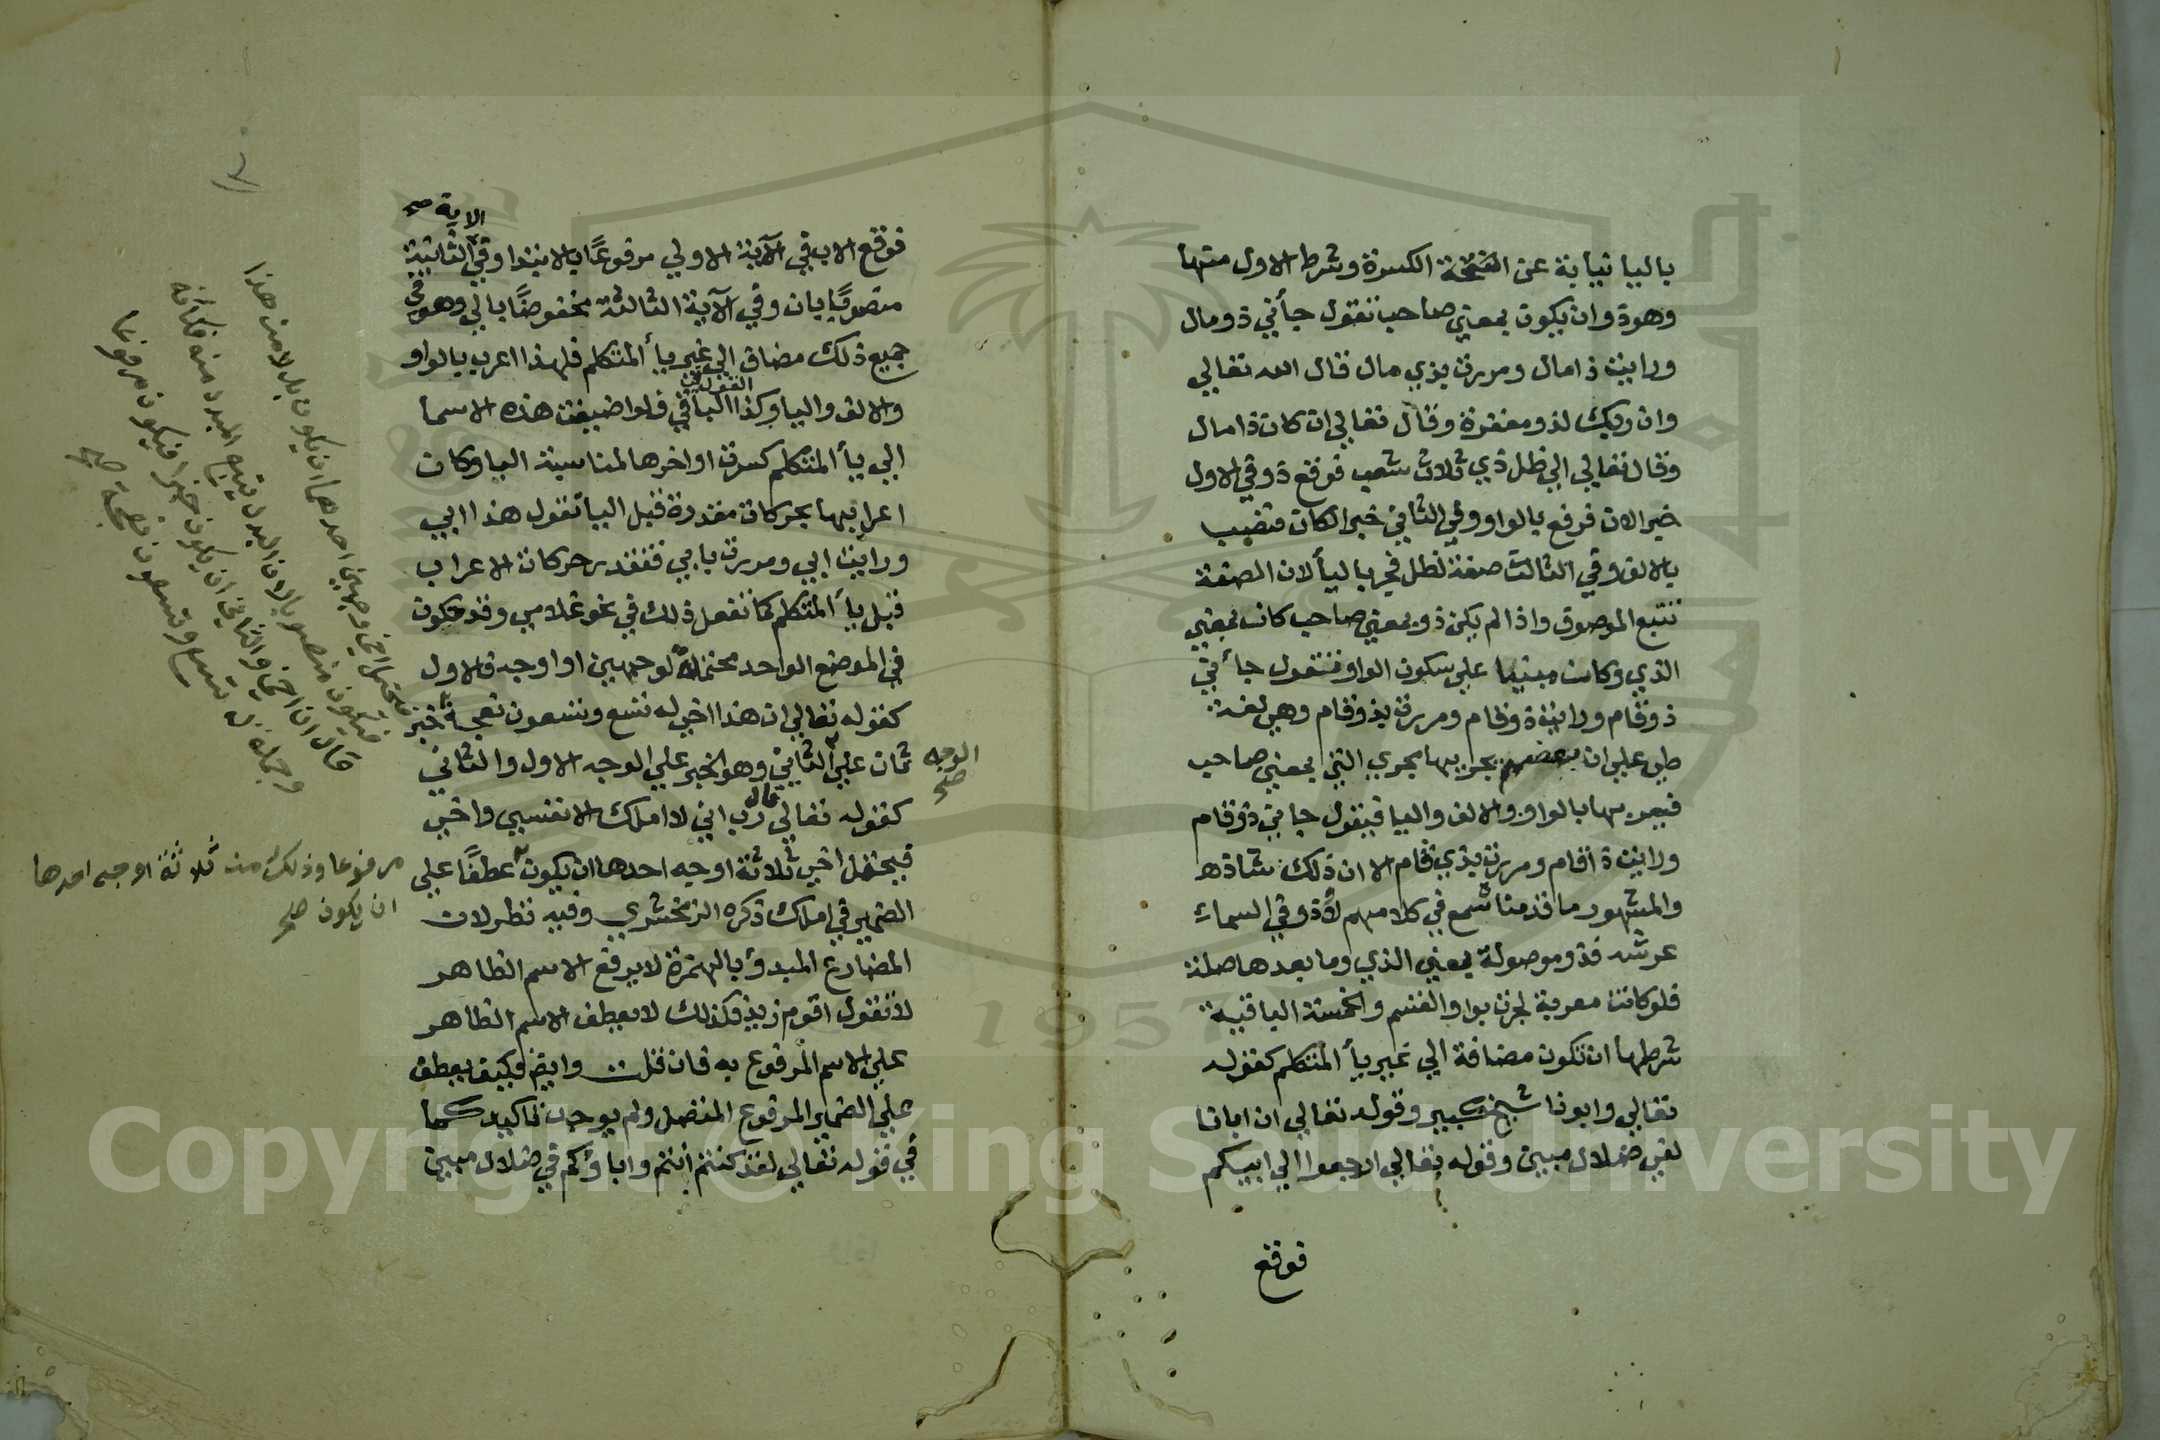 باليا نيابة عن الفتحة الكسرة وشرط الاول منها
وهو ذو ان يكون بمعني صاحب تقول جأني ذو مال
ورايت ذا مال ومررت بذي مال قال الله تعالي
وان ربك لذو مغفرة وقال تعالي ان كان ذا مال
وقال تعالي الي ظل ذي ثلاث شعب فوقع ذو في الاول
خبر الان فرفع بالواو وفي الثاني خبر الكان فنصب
بالالف وفي الثالث صفة لظل فجر باليأ لان الصفة
تتبع الموصوف واذا لم يكن ذو بمعني صاحب كانت بمعني
الذي وكانت مبنيا علي سكون الواو فتقول جأني
ذو قام ورايت ذو قام ومررت بذو قام وهي لغة
طي علي ان بعضهم يجريها مجري التي بمعني صاحب
فيعربها بالواو والالف واليا فيقول جاني ذو قام
ورايت ذا قام ومررت بذي قام الا ان ذلك شاذ
والمشهور ما قدمنا سمع في كلامهم لا وذو في السماء
عرشه فذو موصولة بمعني الذي وما بعدها صلة
فلو كانت معربة لجرت بواو القسم والخمسة الباقية
شرطها ان تكون مضافة الي غير يأ المتكلم كقوله
تعالي وابونا شيخ كبير وقوله تعالي ان ابانا
لفي ضلال مبين وقوله تعالي ارجعوا الي ابيكم
فوقع
الاية صح
فوقع الاب في الآية الاولي مرفوعًا بالابتدا وفي الثانية
منصوبًا بان وفي الآية الثالثة مخفوضًا بالي وهو في
جميع ذلك مضاف الي غير يأ المتكلم فلهذا اعرب بالواو
القول في
والالف واليا وكذا الباقي فلو اضيفت هذه الاسما
الي يأ المتكلم كسرت اواخرها لمناسبة اليا وكان
اعرابها بحركات مقدرة قبل اليا تقول هذا ابي
ورايت ابي ومررت بابي فتقدر حركات الاعراب
قبل يأ المتكلم كما تفعل ذلك في نحو غلامي وقد تكون
في الموضع الواحد محتملة لوجهين او اوجه فالاول
كقوله تعالي ان هذا اخي له تسع وتسعون نعجة خبر
ثان علي الثاني وهو الخبر علي الوجه الاول والثاني
الوجه صح
كقوله تعالي قال رب اني لا املك الا نفسي واخي
فيحتمل اخي ثلاثة اوجه احدها ان يكون عطفًا علي
الضمير في املك ذكره الزمخشري وفيه نظر لان
المضارع المبدؤ بالهمزة لا يرفع الاسم الظاهر
لا تقول اقوم زيد فكذلك لا يعطف الاسم الظاهر
علي الاسم المرفوع به فان قلت وايضا فكيف يعطف
علي الضمير المرفوع المتصل ولم يوجد تاكيد كما
في قوله تعالي لقد كنتم انتم واباؤكم في ضلال مبين
فيحتمل اخي وجهين احدهما ان يكون بدلا من هذا
فيكون منصوبا لان البدل يتبع المبدل منه فكانه
قال ان اخي والثاني ان يكون خبرا فيكون مرفوعا
وجملة له تسع وتسعون نعجة صح
مرفوعا وذلك من ثلاثة اوجه احدها
ان يكون صح